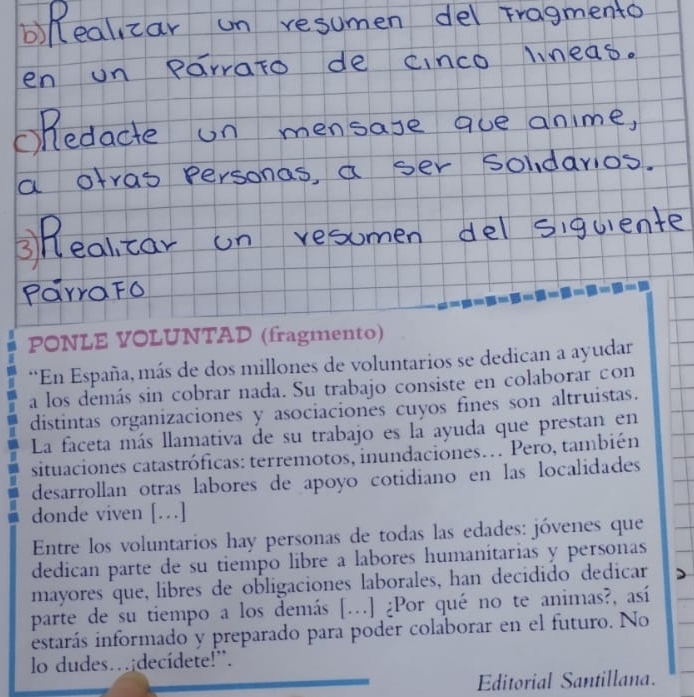 b) Realizar un resumen del Fragmento
en un Párrafo de cinco lineas.
c) Redacte un mensaje que anime,
a otras personas, a ser solidarios.
3) Realizar un resumen del siguiente
Párrafo
PONLE VOLUNTAD (fragmento)
“En España, más de dos millones de voluntarios se dedican a ayudar
a los demás sin cobrar nada. Su trabajo consiste en colaborar con
distintas organizaciones y asociaciones cuyos fines son altruistas.
La faceta más llamativa de su trabajo es la ayuda que prestan en
situaciones catastróficas: terremotos, inundaciones... Pero, también
desarrollan otras labores de apoyo cotidiano en las localidades
donde viven [...]
Entre los voluntarios hay personas de todas las edades: jóvenes que
dedican parte de su tiempo libre a labores humanitarias y personas
mayores que, libres de obligaciones laborales, han decidido dedicar
parte de su tiempo a los demás [...] ¿Por qué no te animas?, así
estarás informado y preparado para poder colaborar en el futuro. No
lo dudes...¡decídete!”.
Editorial Santillana.